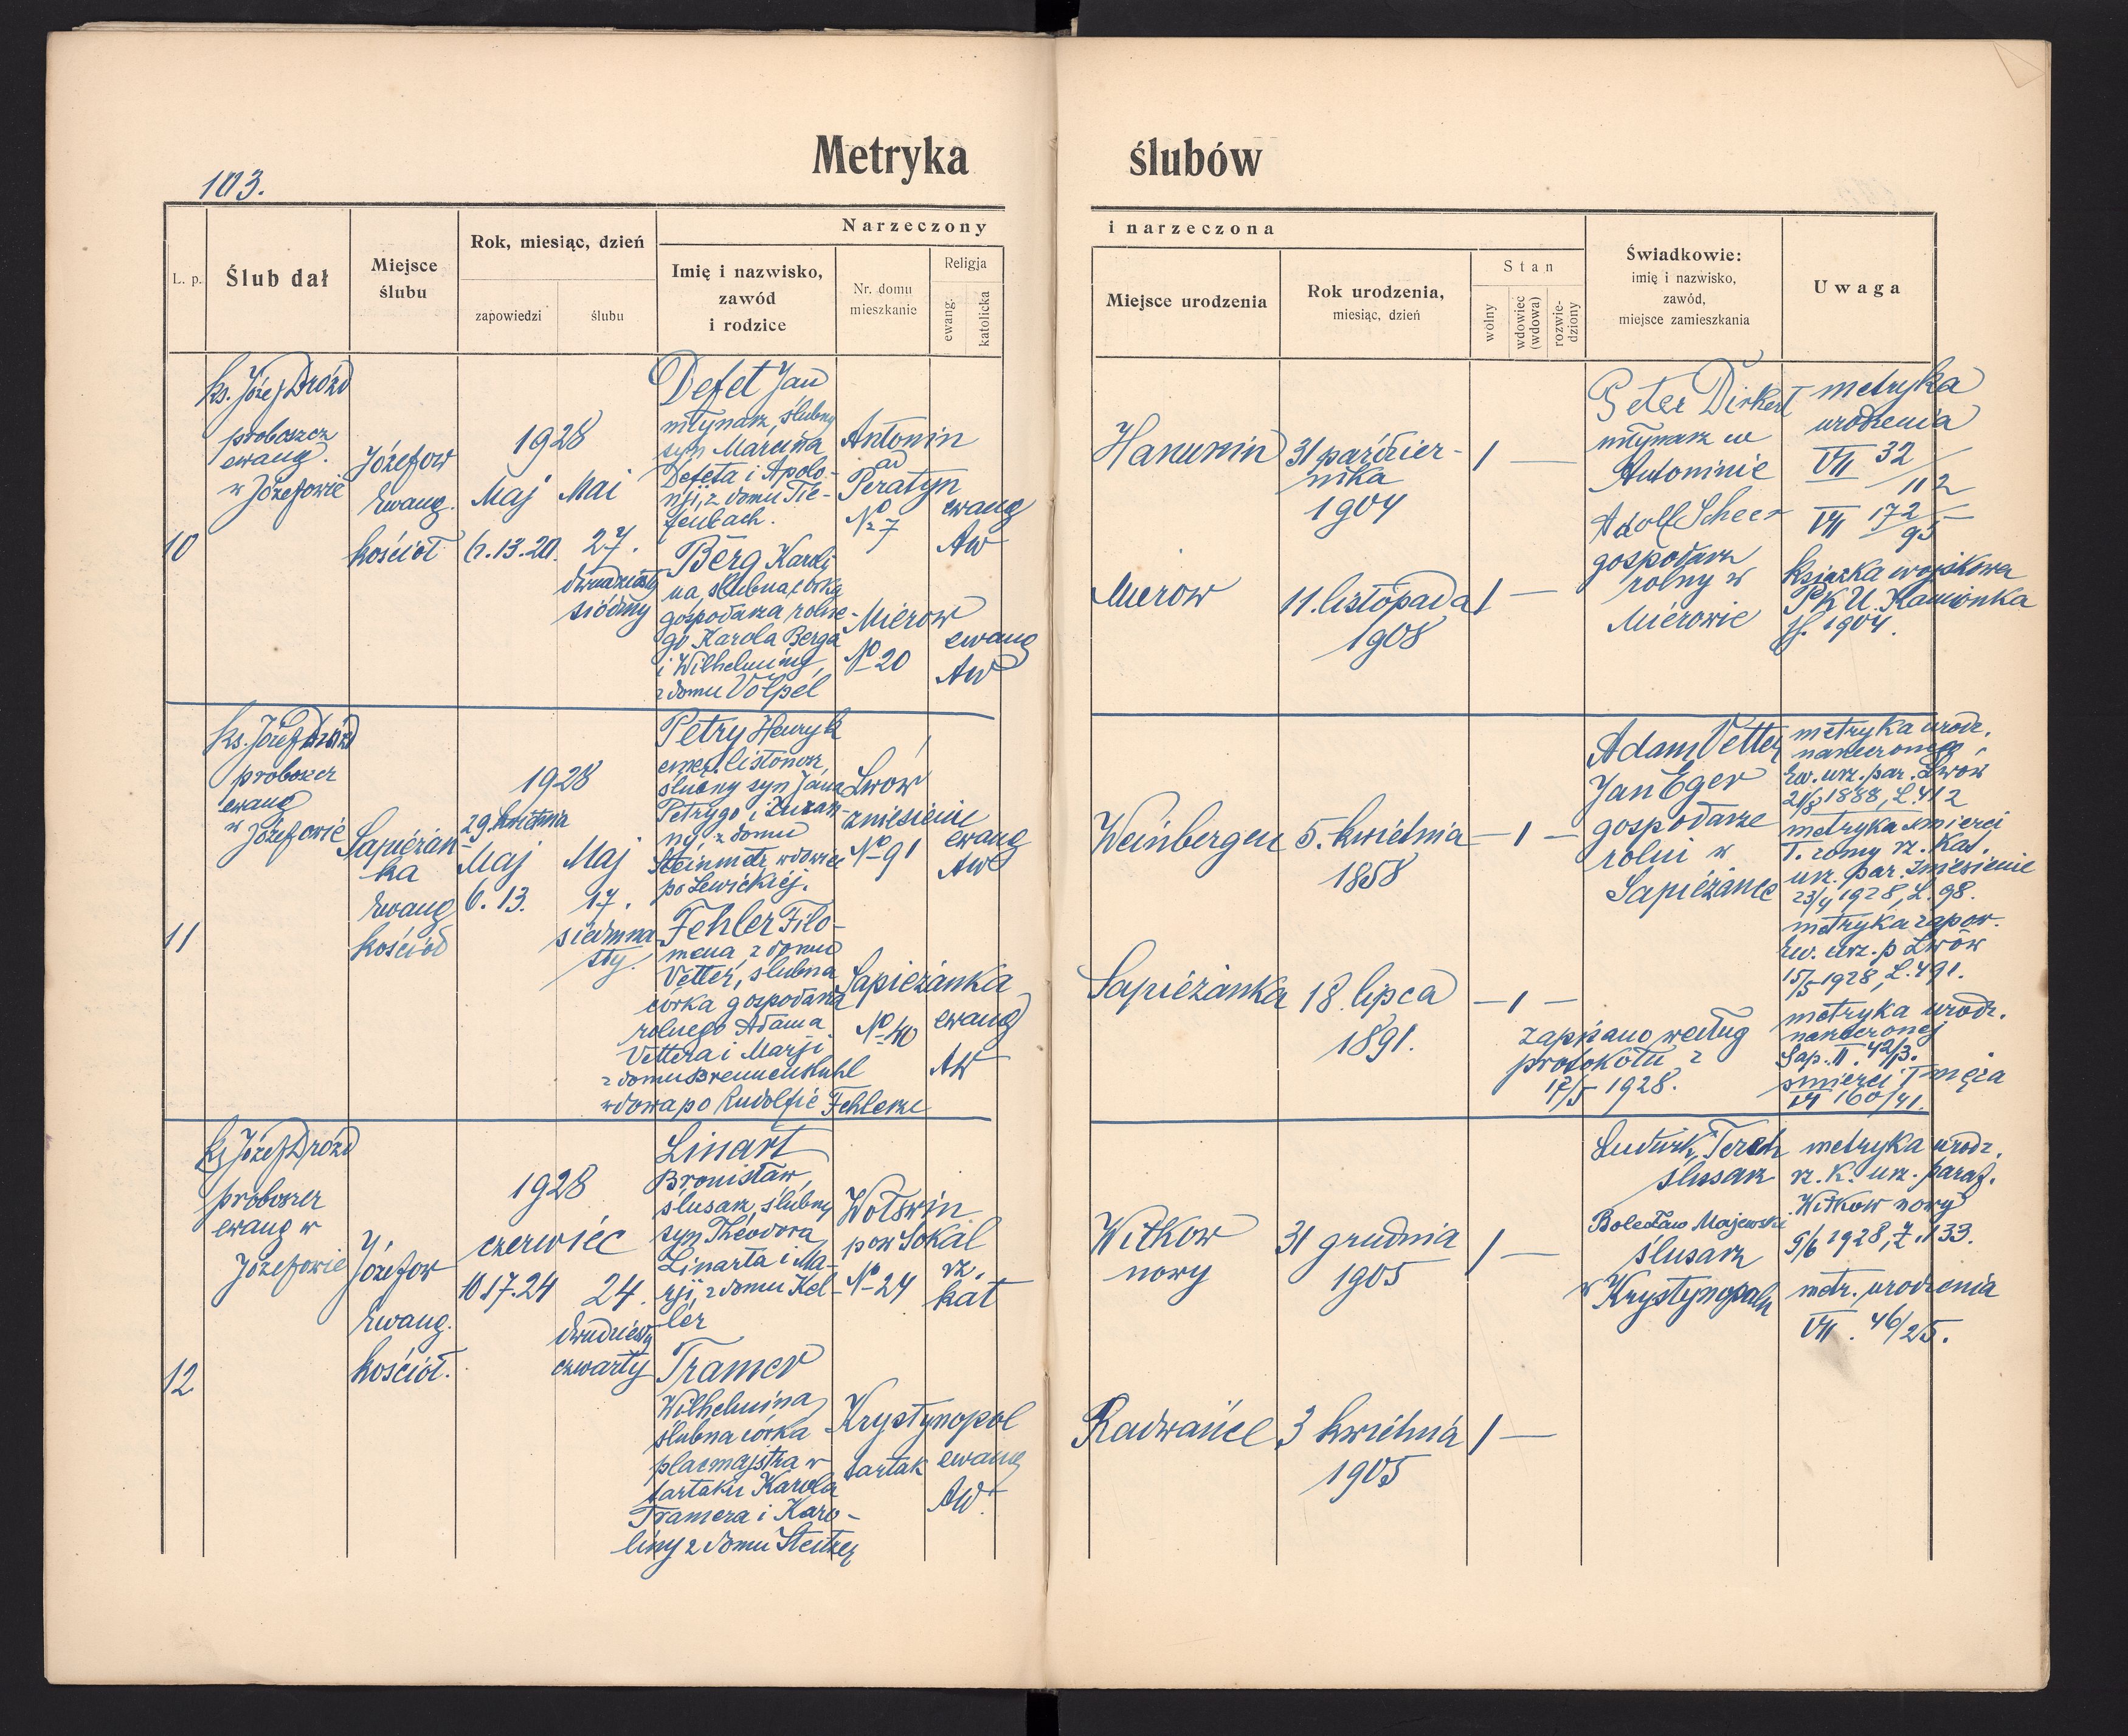 Metryka ślubów
103.
L. p.
Ślub dał
Miejsce
ślubu
Rok, miesiąc, dzień
zapowiedzi
ślubu
Narzeczony
Imię i nazwisko,
zawód
i rodzice
Nr. domu
mieszkanie
Religja
ewang.
katolicka
i narzeczona
Miejsce urodzenia
Rok urodzenia,
miesiąc, dzień
Stan
wolny
wdowiec
(wdowa)
rozwie-
dziony
Świadkowie:
imię i nazwisko,
zawód,
miejsce zamieszkania
Uwaga
10
ks. Józef Drozd
proboszcz
ewang.
w Józefowie
Józefow
Ewang.
kościół
1928
Maj
6. 13. 20.
Mai
27.
dwudziesty
siódmy
Defet Jan
młynarz, ślubny
syn Marcina
Defeta i Apolo-
nji, z domu Tie-
fenbach.
Antonin
ad
Peratyn
No 7
ewang
AW
Berg Karoli
na, ślubna córka
gospodarza rolne-
go Karola Berga
i Wilhelminy,
z domu Völpel
Mierow
No 20
ewang
AW
Hanunin
31 paździer-
nika
1904
1 —
Mierow
11. listopada
1908
1 —
Peter Dirkert
młynarz w
Antoninie
Adolf Scheer
gospodarz
rolny w
Mierowie
metryka
urodzenia
VII 32/112
VII 172/95
Książka wojskowa
P.K.U. Kamionka
1904.
11
ks. Józef Drozd
proboszcz
ewang
w Józefowie
Sapieżan-
ka
Ewang
kościół
1928
29. kwietnia
Maj
6. 13.
Maj
17.
siedmna-
sty.
Petry Henryk
emer. listonosz,
ślubny syn Jana
Petrygo i Zuzan-
ny, z domu
Steinmetz, wdowiec
po Lewickiej.
Lwów
Zniesienie
No 91
ewang
AW
Fehler Filo-
mena, z domu
Vetter, ślubna
córka gospodarza
rolnego Adama
Vettera i Marji
z domu Brennenstuhl
wdowa po Rudolfie Fehlerze
Sapieżanka
No 40
ewang
AW
Weinbergen
5. kwietnia
1858
— 1 —
Sapieżanka
18. lipca
1891.
— 1 —
Adam Vetter
Jan Eger
gospodarze
rolni w
Sapieżance
zapisano według
protokołu z
17/5 1928.
metryka urodz.
narzeczonego,
Ew. urz. par. Lwów
1888, L. 412
metryka śmierci
T. żony rz. kat.
urz. par. Zniesienie
23/4 1928, L. 98.
metryka zapow.
Ew. urz. p Lwów
15/5 1928, L. 491.
metryka urodz.
narzeczonej
Sap. II. 42/13.
śmierci T męża
VI 160/41.
12
ks Józef Drozd
proboszcz
ewang w
Józefowie
Józefow
Ewang.
kościół.
1928
czerwiec
10 17. 24
24.
dwudziesty
czwarty
Linart
Bronisław,
ślusarz, ślubny
syn Theodora
Linarta i Ma-
rji, z domu Kel-
ler
Wołświn
pow Sokal
No 24
rz.
kat
Tramer
Wilhelmina
ślubna córka
placmajstra w
tartaku Karola
Tramera i Karo-
liny z domu
Krystynopol
tartak
ewang
AW.
Witkow
nowy
31 grudnia
1905
1 —
Radwańce
3 kwietnia
1905
1 —
Ludwik
ślusarz
Bolesław Majewski
ślusarz
w Krystynopolu
metryka urodz.
rz. k. urz. paraf.
Witkow nowy
5/6 1928, L. 133.
metr. urodzenia
VII. 46/25.